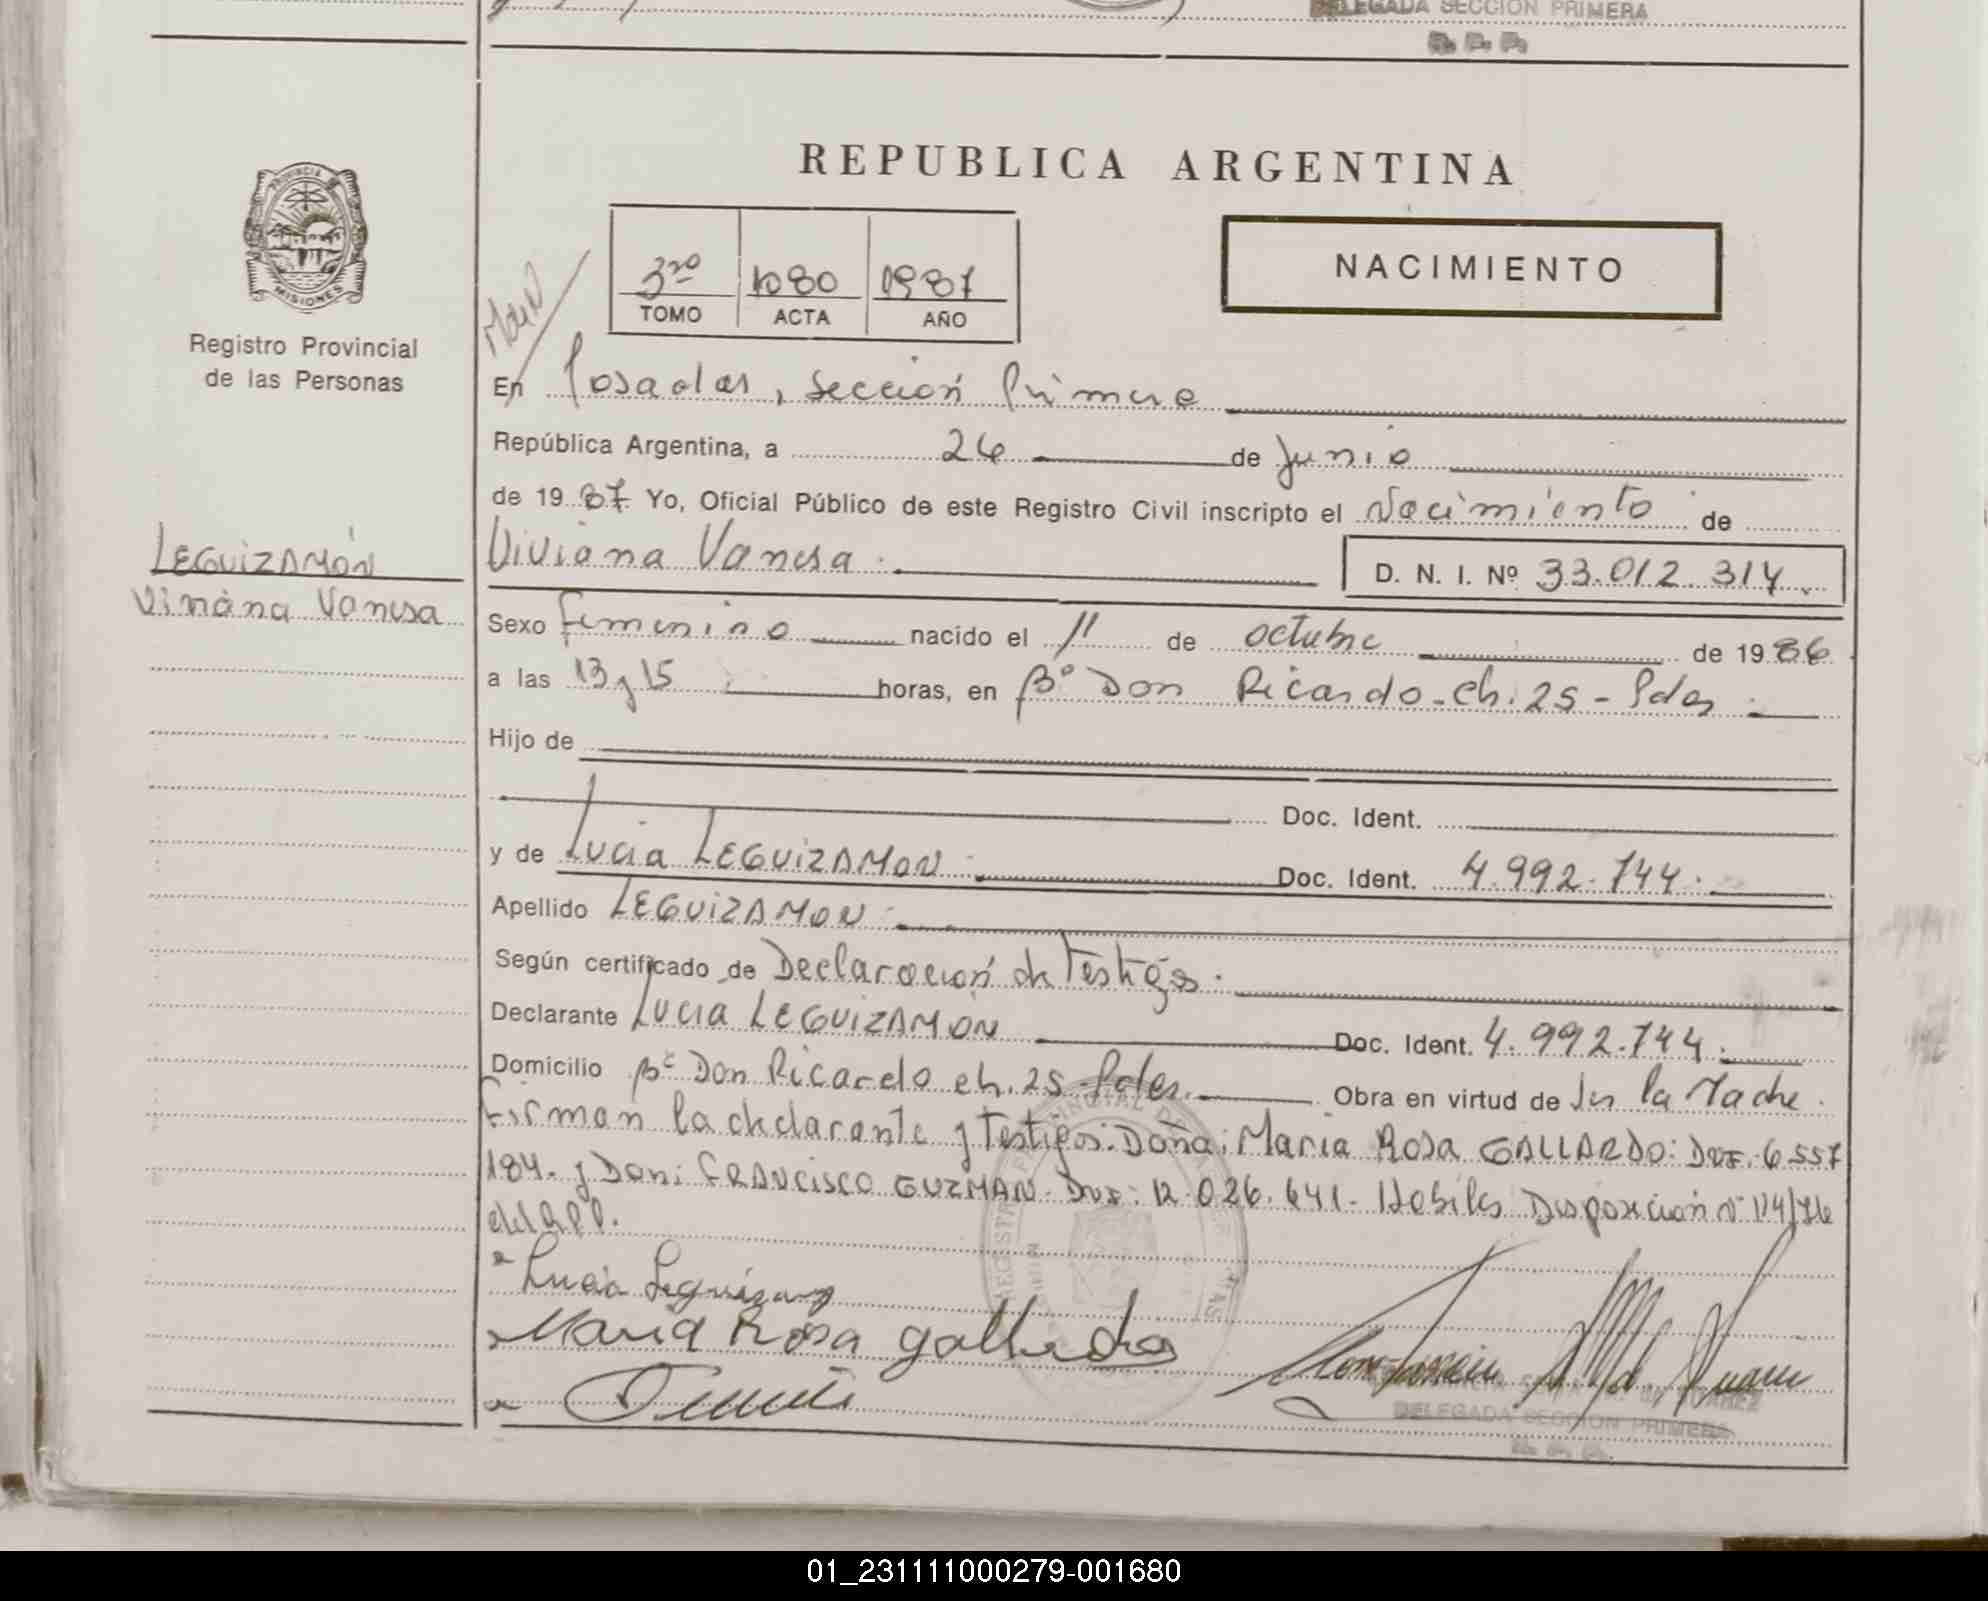 DELEGADA SECCION PRIMERA
R. P. P.
PROVINCIA DE
MISIONES
Registro Provincial
de las Personas
LEGUIZAMÓN
Viviana Vanesa
REPUBLICA ARGENTINA
3ro 1080 1987
TOMO ACTA AÑO
NACIMIENTO
En Posadas, Sección Primera
República Argentina, a 26 de Junio
de 1987 Yo, Oficial Público de este Registro Civil inscripto el Nacimiento de
Viviana Vanesa. D. N. I. Nº 33.012.314
Sexo femenino nacido el 11 de octubre de 1986
a las 13 y 15 horas, en Bº Don Ricardo - Ch. 25 - Pdas
Hijo de
Doc. Ident.
y de Lucia LEGUIZAMON Doc. Ident. 4.992.744.
Apellido LEGUIZAMON
Según certificado de Declaración de Testigos.
Declarante Lucia LEGUIZAMON Doc. Ident. 4.992.744.
Domicilio Bº Don Ricardo ch. 25 - Pdas. Obra en virtud de Ser la Madre.
Firman la declarante y Testigos: Doña: Maria Rosa GALLARDO: DNI. 6.557
184. y Don: FRANCISCO GUZMAN. DNI: 12.026.641. Habiles Disposición Nº 114/76
del R.P.P.
Lucia Leguizamon
Maria Rosa Gallardo
DELEGADA SECCION PRIMERA
R. P. P.
01_231111000279-001680